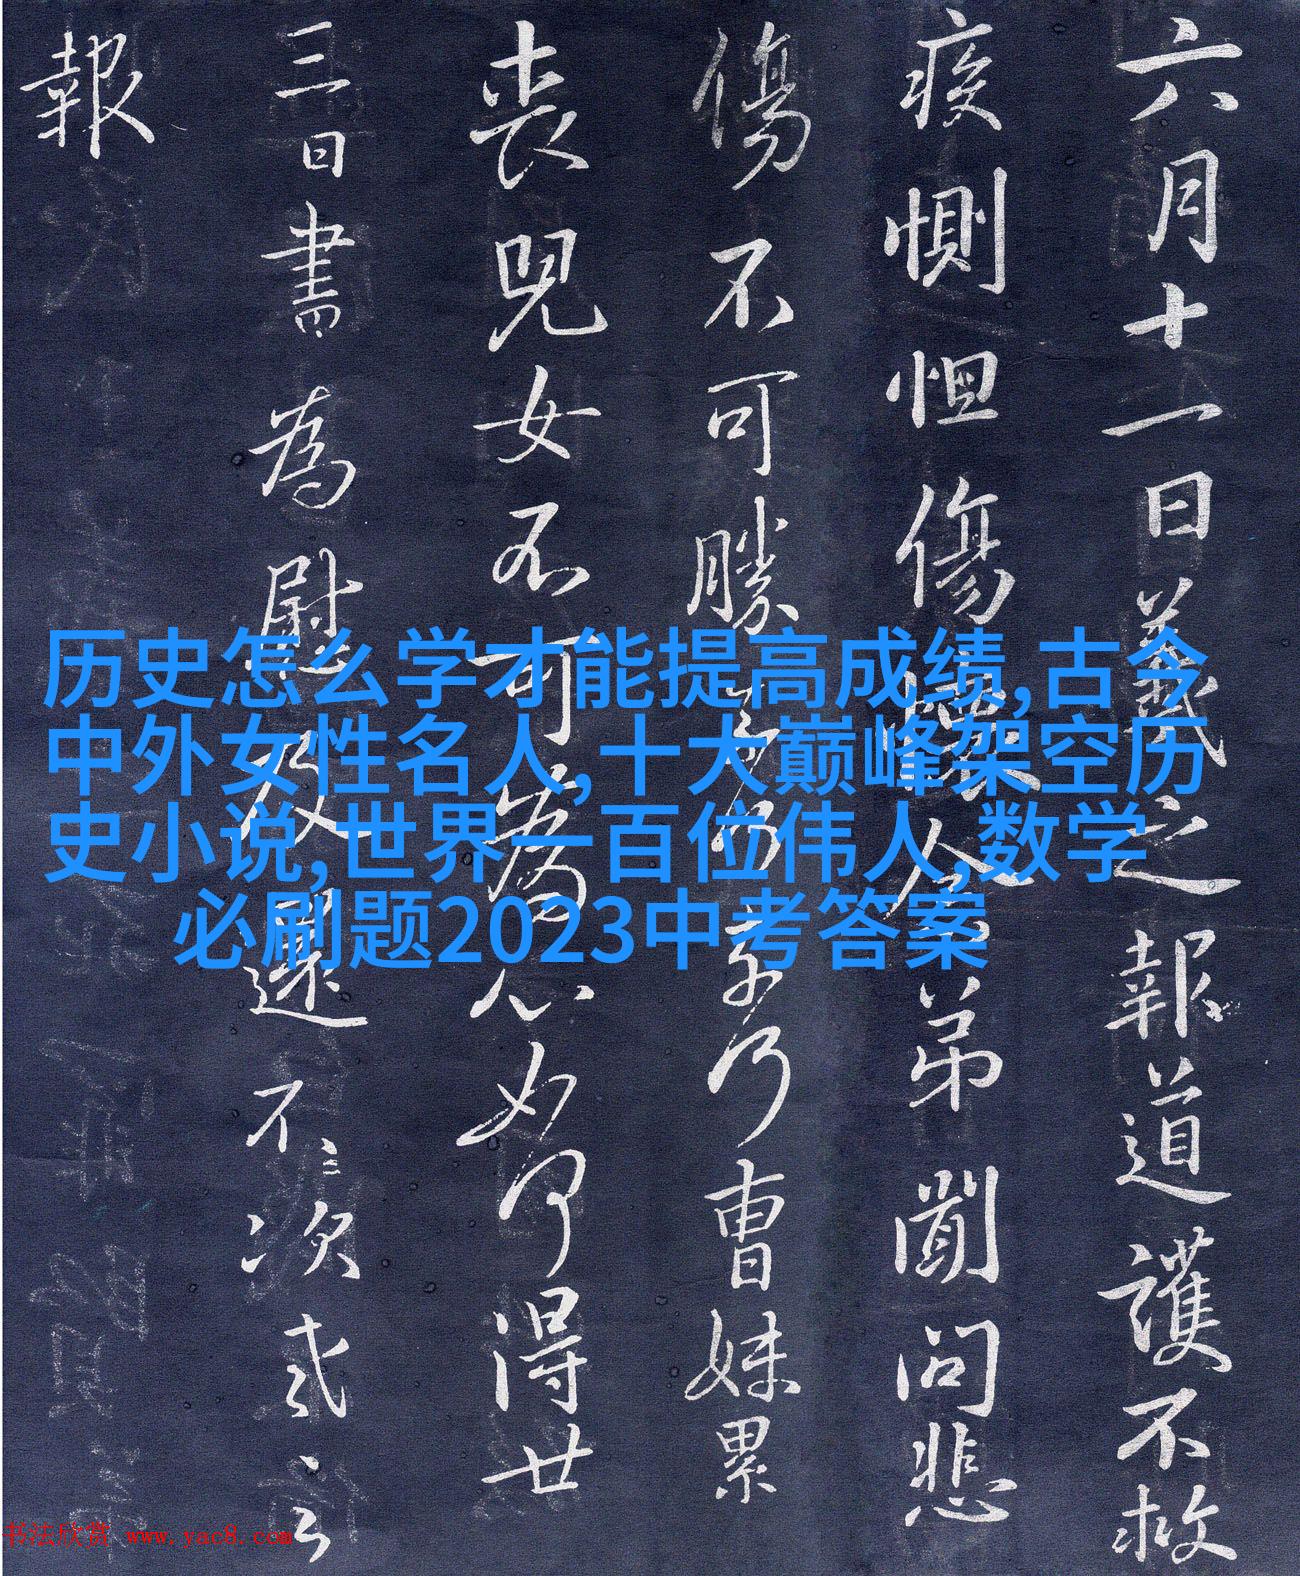 六月十一日羲之報道護不救
疾惻怛傷懷人弟聞問悲
傷不可勝奈乃曹妹累
喪兒女不可為心如何得廿
三日書為慰及還不次
報
历史怎么学才能提高成绩,古今
中外女性名人,十大巅峰架空历
史小说,世界一百位伟人,数学
必刷题2023中考答案
书法欣赏 www.yac8.com